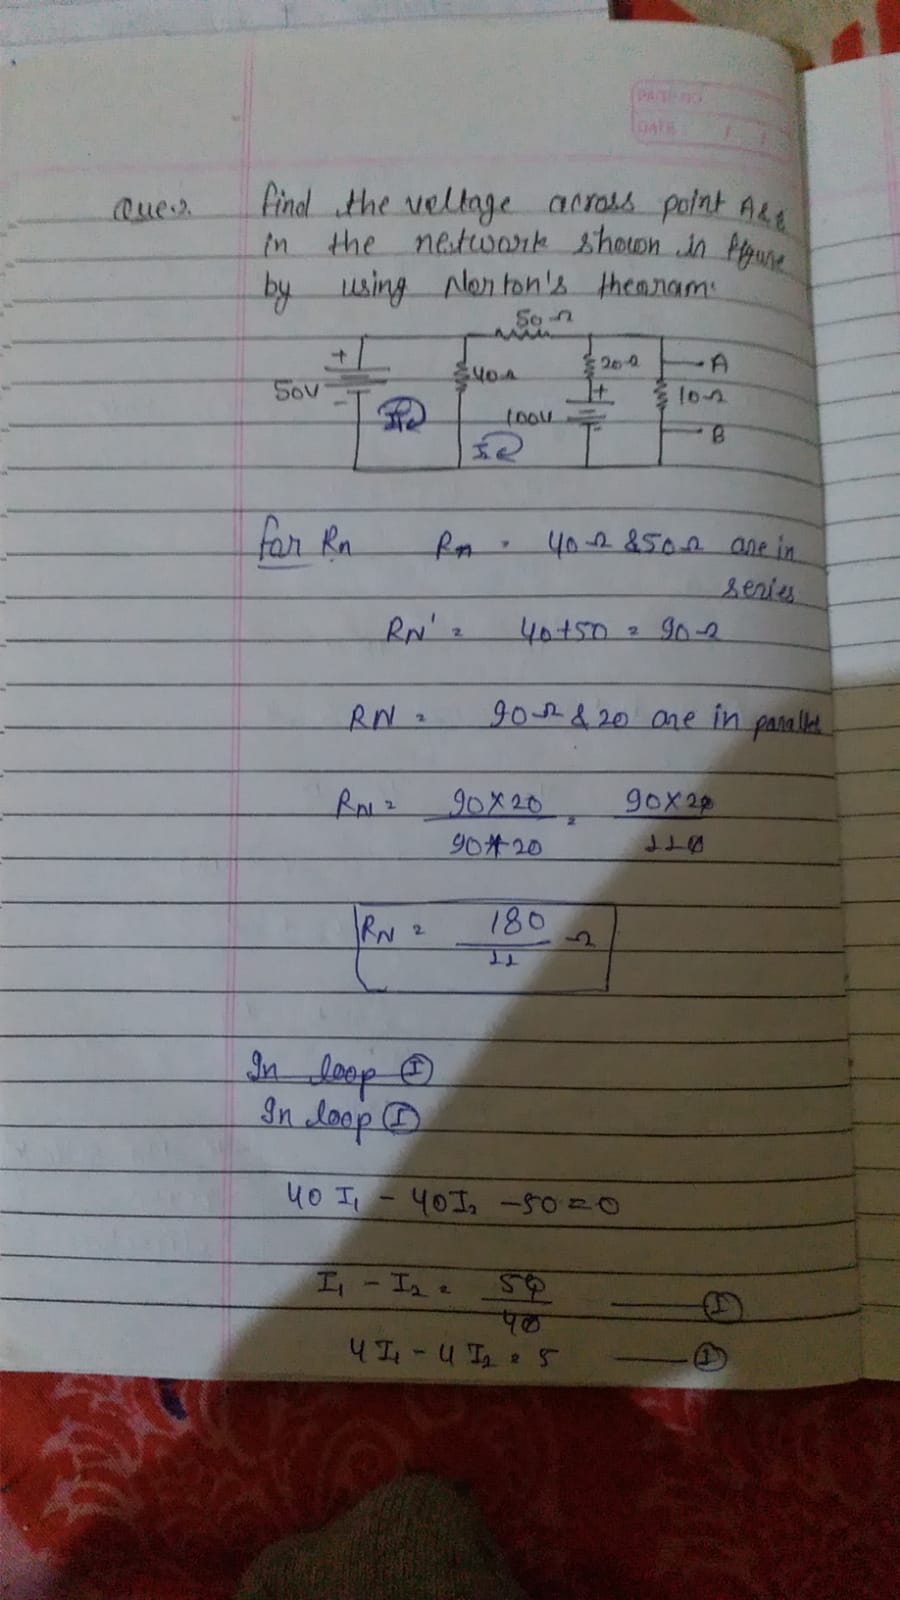 PAGE NO
DATE / /
Que.2. find the voltage across point A & B
in the network shown in figure
by using Norton's thearam.
50Ω
+ 20Ω A
50V 40Ω + 10Ω
I₁ 100V -
- I₂ B
for Rn Rn = 40Ω & 50Ω are in
series
RN' = 40+50 = 90Ω
RN = 90Ω & 20 are in parallel
RN = 90×20 = 90×20
90+20 110
RN = 180 Ω
11
In loop I
In loop I
40 I₁ - 40I₂ - 50 = 0
I₁ - I₂ = 50 I
40
4 I₁ - 4 I₂ = 5 I